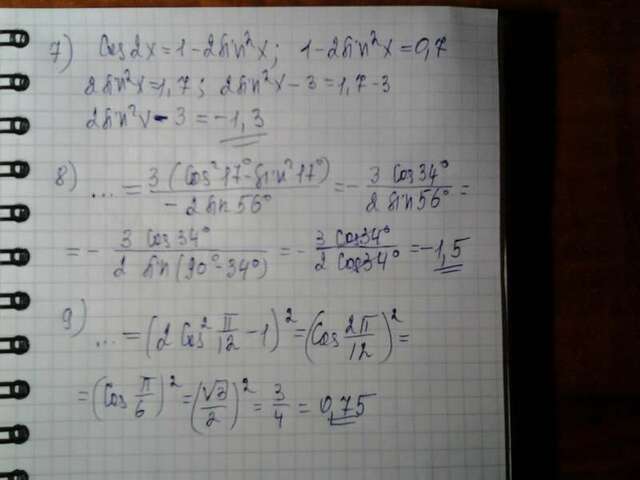 7) Cos 2x = 1 - 2sin²x; 1 - 2sin²x = 0,7
2sin²x = 1,7; 2sin²x - 3 = 1,7 - 3
2sin²x - 3 = -1,3
8) ... = 3(Cos²17° - sin²17°) / -2sin56° = - 3Cos34° / 2sin56° =
= - 3Cos34° / 2sin(90° - 34°) = - 3Cos34° / 2Cos34° = -1,5
9) ... = (2Cos² π/12 - 1)² = (Cos 2π/12)² =
= (Cos π/6)² = (√3/2)² = 3/4 = 0,75